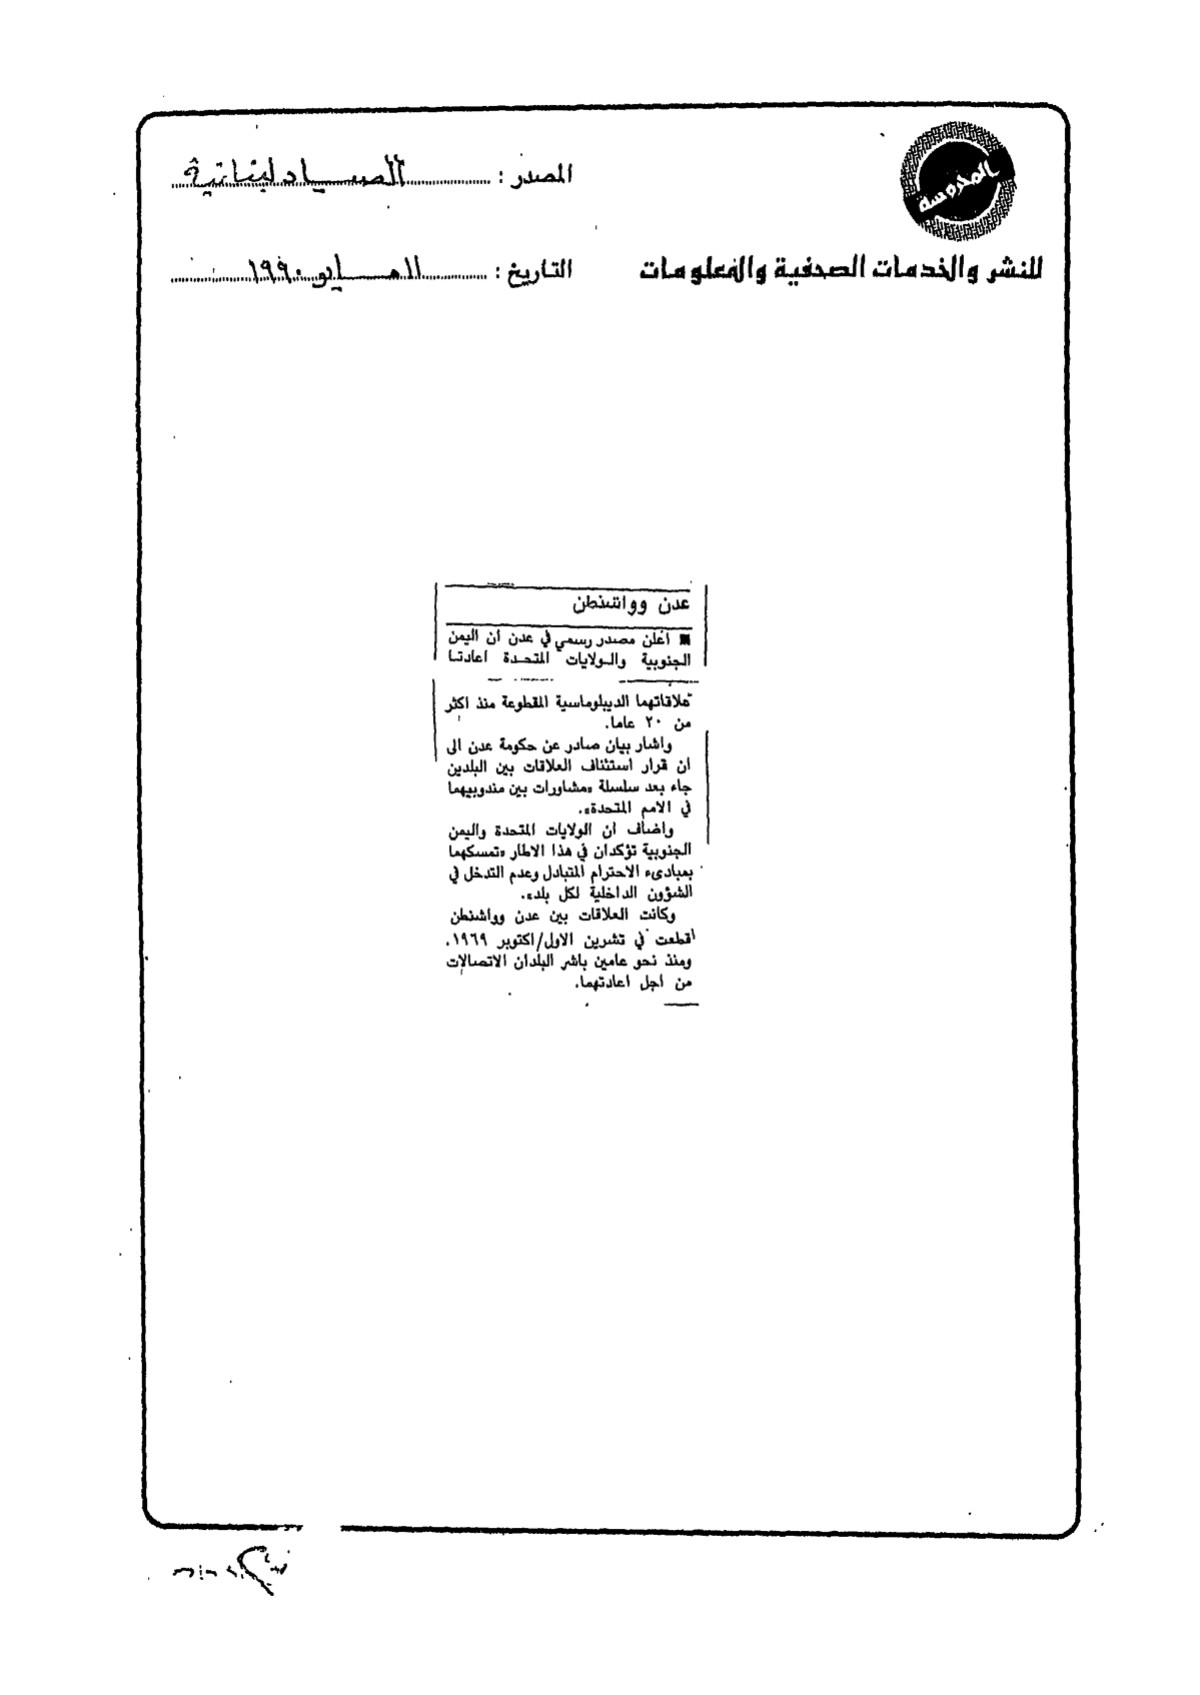 المحروسة
للنشر والخدمات الصحفية والمعلومات
المصدر : الصياد لبنانية
التاريخ : ١١ مايو ١٩٩٠
عدن وواشنطن
■ أعلن مصدر رسمي في عدن ان اليمن
الجنوبية والولايات المتحدة أعادتا
علاقاتهما الديبلوماسية المقطوعة منذ اكثر
من ٢٠ عاما.
واشار بيان صادر عن حكومة عدن الى
ان قرار استئناف العلاقات بين البلدين
جاء بعد سلسلة «مشاورات بين مندوبيهما
في الامم المتحدة».
واضاف ان الولايات المتحدة واليمن
الجنوبية تؤكدان في هذا الاطار «تمسكهما
بمبادىء الاحترام المتبادل وعدم التدخل في
الشؤون الداخلية لكل بلد».
وكانت العلاقات بين عدن وواشنطن
قطعت في تشرين الاول/اكتوبر ١٩٦٩.
ومنذ نحو عامين باشر البلدان الاتصالات
من أجل اعادتهما.